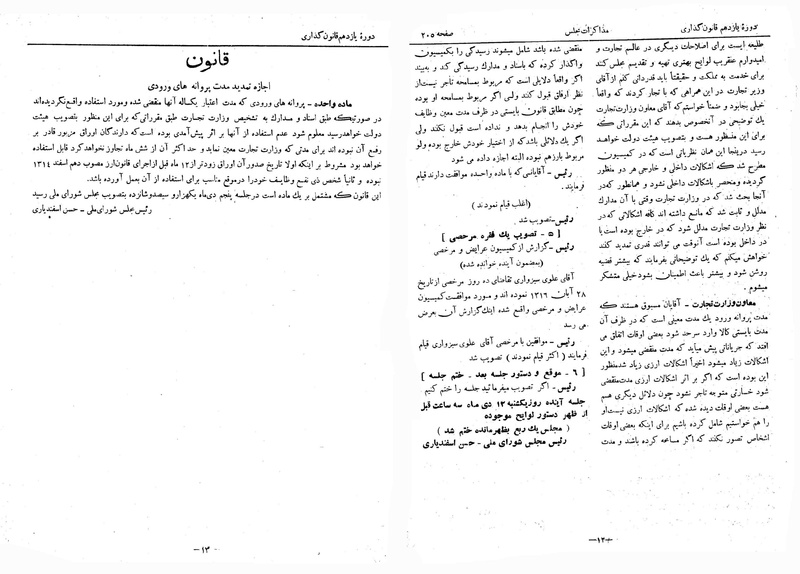 دورهٔ یازدهم قانون گذاری
مذاکرات مجلس
صفحه ۲۰۵
طلیعه ایست برای اصلاحات دیگری در عالم تجارت و
امیدوارم عنقریب لوایح بهتری تهیه و تقدیم مجلس کنند
برای خدمت به مملکت و حقیقتاً باید قدردانی کنم از آقای
وزیر تجارت در این همراهی که با تجار کردند که واقعاً
خیلی بجا بود و ضمناً خواستیم که آقای معاون وزارت تجارت
یک توضیحی در آنخصوص بدهند که این مقرراتی که
برای این منظور هست و بتصویب هیئت دولت خواهد
رسید در اینجا این همان نظریاتی است که در کمیسیون
مطرح شد که اشکالات داخلی و خارجی هر دو منظور
گردیده و منحصر باشکالات داخلی نشود و همانطور که در
آنجا بحث شد که در وزارت تجارت وقتی با آن مدارک
مدلل و ثابت شد که مانع داشته اند کافه اشکالاتی که در
نظر وزارت تجارت مدلل شود که در خارج بوده است یا
در داخل بوده است آنوقت می توانند قدری تمدید کنند
خواهش میکنم که یک توضیحاتی بفرمایند که بیشتر قضیه
روشن شود و بیشتر باعث اطمینان بشود خیلی متشکر
میشوم.
معاون وزارت تجارت - آقایان مسبوق هستند که
مدت پروانه ورود یک مدت معینی است که در ظرف آن
مدت بایستی کالا وارد سرحد شود بعضی اوقات اتفاق می
افتد که جریاناتی پیش میاید که مدت منقضی میشود و این
اشکالات زیاد میشود اخیراً اشکالات ارزی زیاد شد منظور
این بوده است که اگر بر اثر اشکالات ارزی مدت منقضی
شود خسارتی متوجه تاجر نشود چون دلائل دیگری هم
هست بعضی اوقات دیده شده که اشکالات ارزی نیست او
را هم خواستیم شامل کرده باشیم برای اینکه بعضی اوقات
اشخاص تصور نکنند که اگر مسامحه کرده باشند و مدت
منقضی شده باشد شامل میشوند رسیدگی را بکمیسیون
واگذار کرده که باسناد و مدارک رسیدگی کند و به بیند
اگر واقعاً دلایلی است که مربوط بمسامحه تاجر نیست از
نظر ارفاق قبول کند ولی اگر مربوط بمسامحه او بوده
چون مطابق قانون بایستی در ظرف مدت معین وظایف
خودش را انجام بدهد و نداده است قبول نکند ولی
اگر یک دلائلی باشد که از اختیار خودش خارج بوده ولو
مربوط بارز هم نبوده البته اجازه داده می شود
رئیس - آقایانی که با ماده واحده موافقت دارند قیام
فرمایند.
(اغلب قیام نمودند)
رئیس - تصویب شد.
[ ۵ - تصویب یک فقره مرخصی ]
رئیس - گزارش از کمیسیون عرایض و مرخصی
(بمضمون آینده خوانده شد)
آقای علوی سبزواری تقاضای ده روز مرخصی از تاریخ
۲۸ آبان ۱۳۱۶ نموده اند و مورد موافقت کمیسیون
عرایض و مرخصی واقع شده اینک گزارش آن بعرض
می رسد
رئیس - موافقین با مرخصی آقای علوی سبزواری قیام
فرمایند ( اکثر قیام نمودند ) تصویب شد
[ ۶ - موقع و دستور جلسه بعد - ختم جلسه ]
رئیس - اگر تصویب میفرمائید جلسه را ختم کنیم
جلسه آینده روز یکشنبه ۱۲ دی ماه سه ساعت قبل
از ظهر دستور لوایح موجوده
( مجلس یک ربع بظهر مانده ختم شد )
رئیس مجلس شورای ملی - حسن اسفندیاری
-۱۲-
دورهٔ یازدهم قانون گذاری
قانون
اجازه تمدید مدت پروانه های ورودی
ماده واحده - پروانه های ورودی که مدت اعتبار یکساله آنها منقضی شده و مورد استفاده واقع نگردیده اند
در صورتیکه طبق اسناد و مدارک به تشخیص وزارت تجارت طبق مقرراتی که برای این منظور بتصویب هیئت
دولت خواهد رسید معلوم شود عدم استفاده از آنها بر اثر پیش آمدی بوده است که دارندگان اوراق مزبور قادر بر
رفع آن نبوده اند برای مدتی که وزارت تجارت معین نماید و حد اکثر آن از شش ماه تجاوز نخواهد کرد قابل استفاده
خواهد بود مشروط بر اینکه اولا تاریخ صدور آن اوراق زودتر از ۱۲ ماه قبل از اجرای قانون ارز مصوب دهم اسفند ۱۳۱۴
نبوده و ثانیاً شخص ذی نفع وظایف خود را در موقع مناسب برای استفاده از آن بعمل آورده باشد.
این قانون که مشتمل بر یک ماده است در جلسه پنجم دی ماه یکهزار و سیصد و شانزده بتصویب مجلس شورای ملی رسید
رئیس مجلس شورای ملی - حسن اسفندیاری
-۱۳-